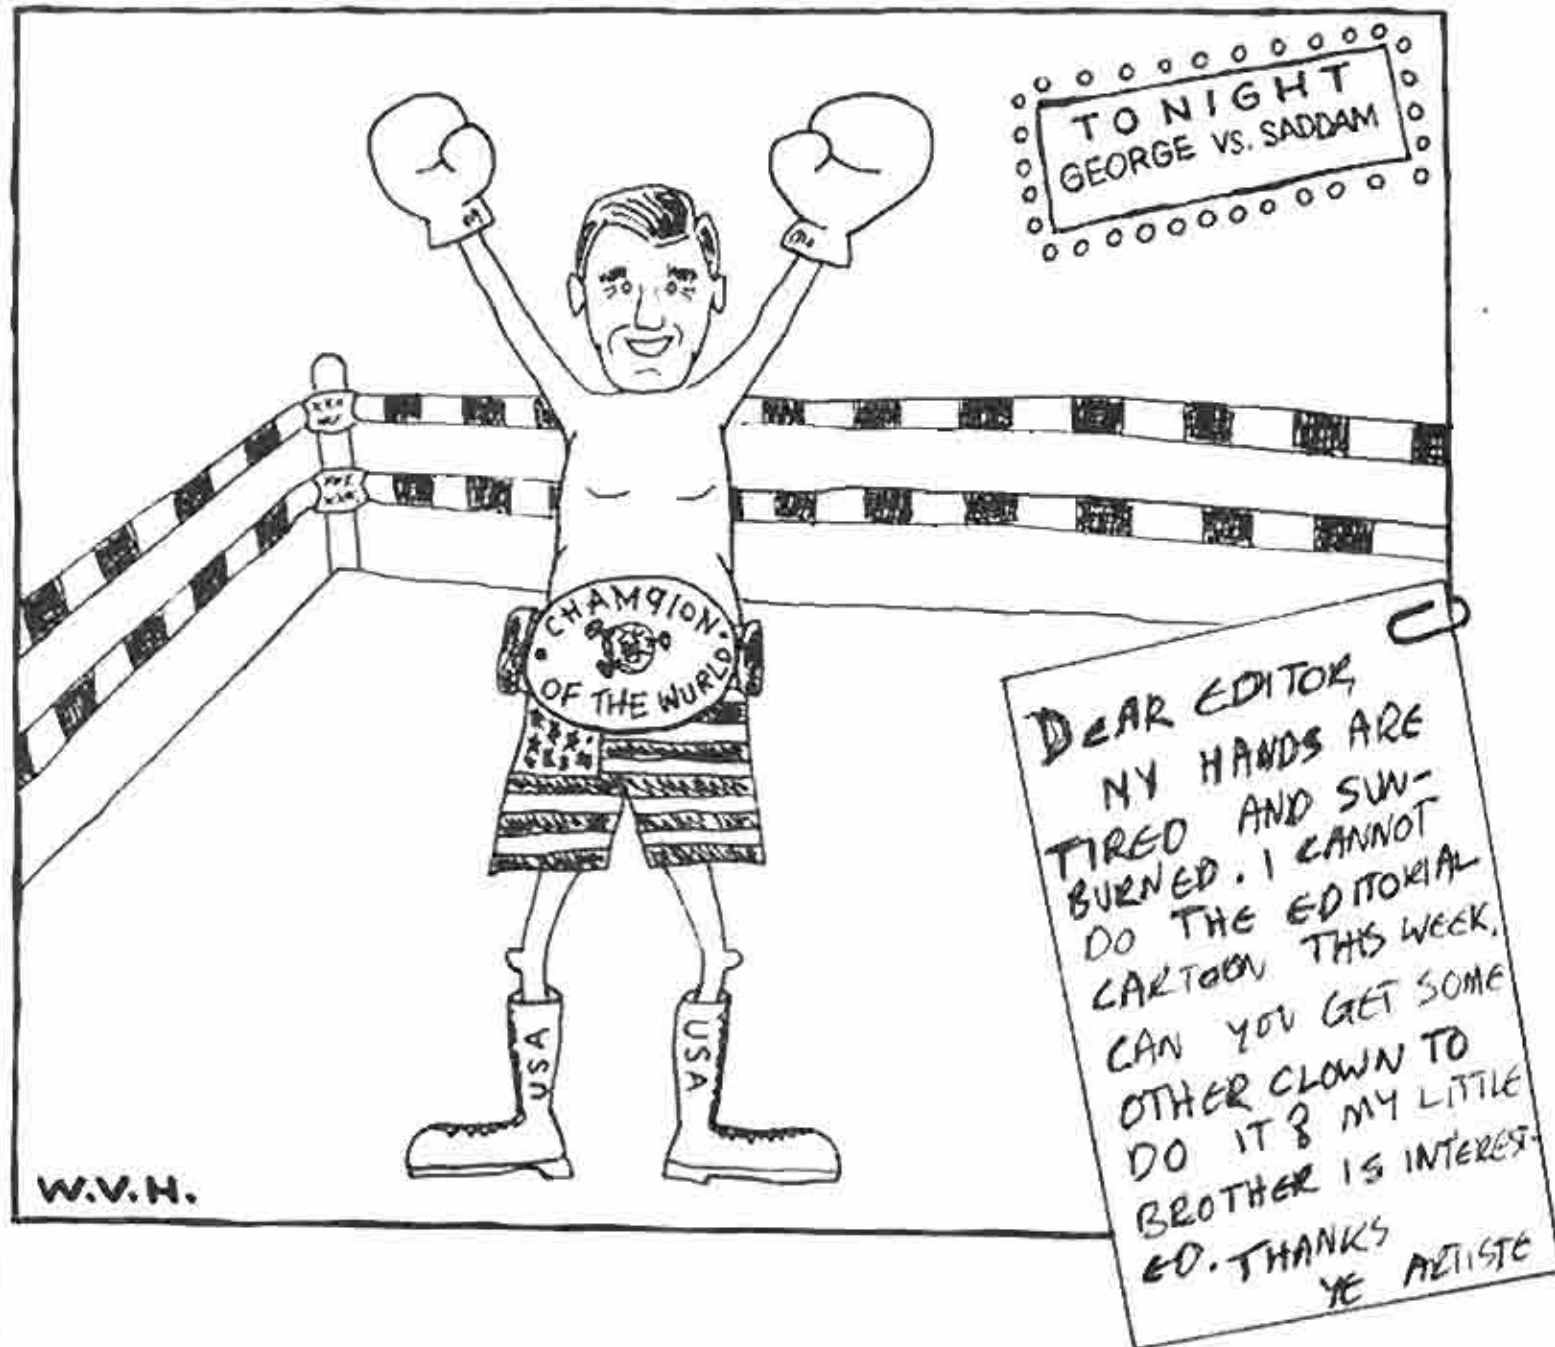 TONIGHT
GEORGE VS. SADDAM
CHAMPION
OF THE WURLD
USA
USA
W.V.H.
DEAR EDITOR,
MY HANDS ARE
TIRED AND SUN-
BURNED. I CANNOT
DO THE EDITORIAL
CARTOON THIS WEEK.
CAN YOU GET SOME
OTHER CLOWN TO
DO IT? MY LITTLE
BROTHER IS INTEREST-
ED. THANKS
YE ARTISTE